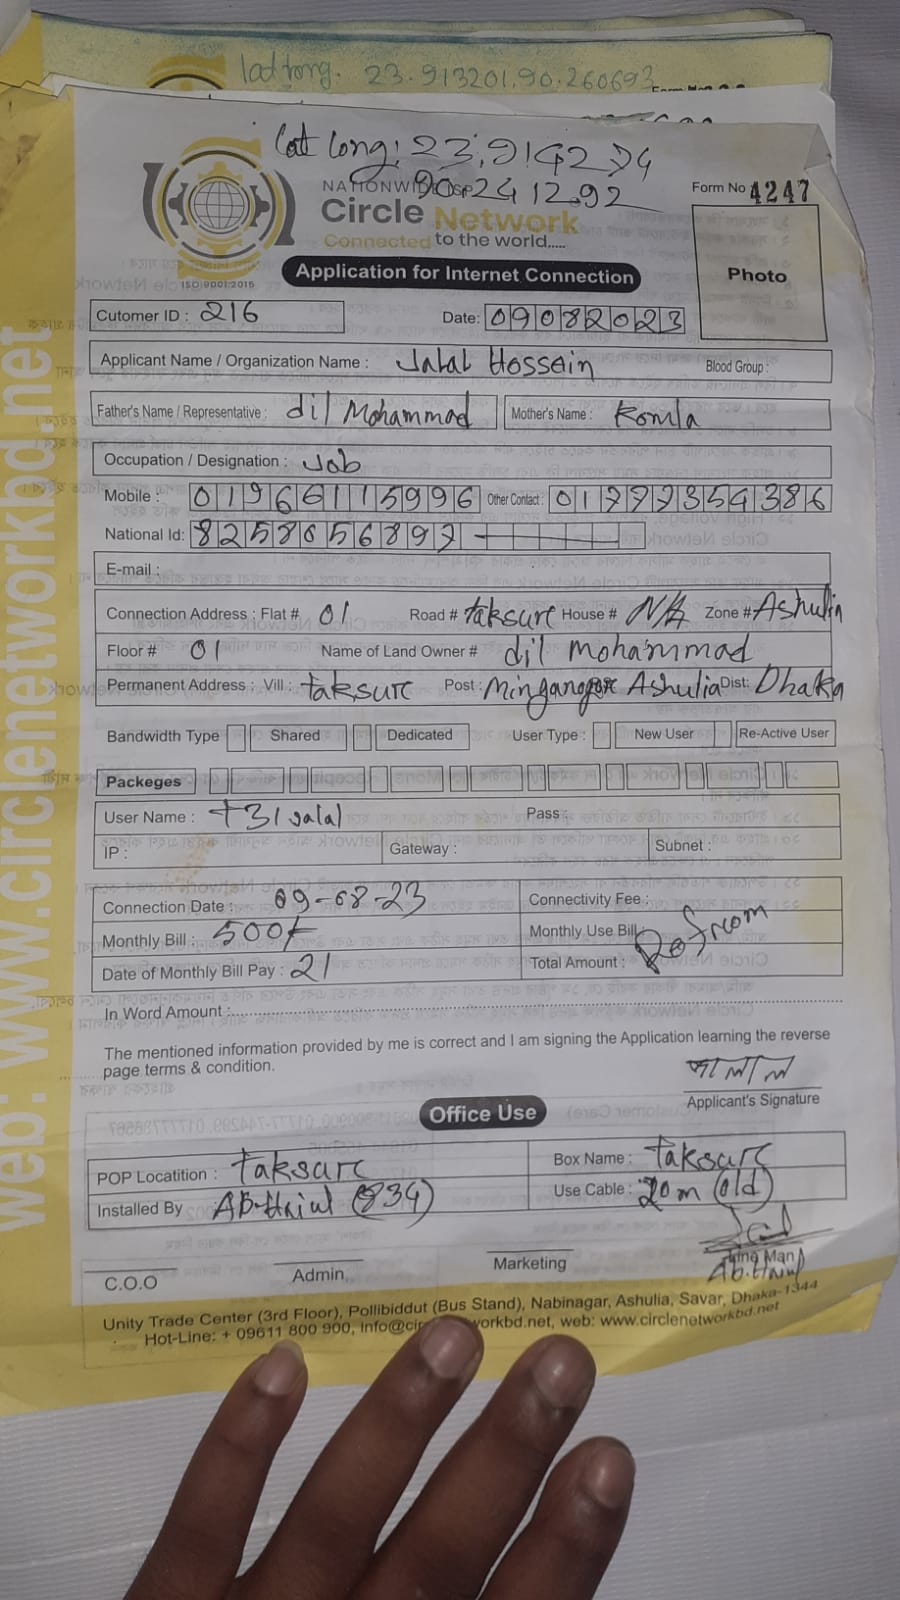 lat long. 23.913201,90.260693
Lat long: 23.914274
90.2412.92
NATIONWIDE ISP
Form No 4247
Circle Network
Connected to the world.....
Photo
ISO 9001:2015
Application for Internet Connection
Cutomer ID : 216 Date: 09082023
Applicant Name / Organization Name : Jalal Hossein Blood Group :
Father's Name / Representative : dil Mohammad Mother's Name : Komla
Occupation / Designation : Job
Mobile : 01966115996 Other Contact : 01777354386
National Id: 8258656897
E-mail :
Connection Address : Flat #. 01 Road # taksure House # N/A Zone # Ashulia
Floor # 01 Name of Land Owner # dil mohammad
Permanent Address : Vill : taksure Post : Ashulia Dist: Dhaka
Bandwidth Type Shared Dedicated User Type : New User Re-Active User
Packeges
User Name : t31jalal Pass :
IP : Gateway : Subnet :
Connection Date : 09-08-23 Connectivity Fee :
Monthly Bill : 500/- Monthly Use Bill :
Date of Monthly Bill Pay : 21 Total Amount :
In Word Amount :
The mentioned information provided by me is correct and I am signing the Application learning the reverse
page terms & condition.
জালাল
Applicant's Signature
Office Use
POP Locatition : taksure Box Name : taksure
Installed By (834) Use Cable : 20m (old)
C.O.O Admin Marketing Line Man
Unity Trade Center (3rd Floor), Pollibiddut (Bus Stand), Nabinagar, Ashulia, Savar, Dhaka-1344
Hot-Line: + 09611 800 900, info@cir workbd.net, web: www.circlenetworkbd.net
web: www.circlenetworkbd.net